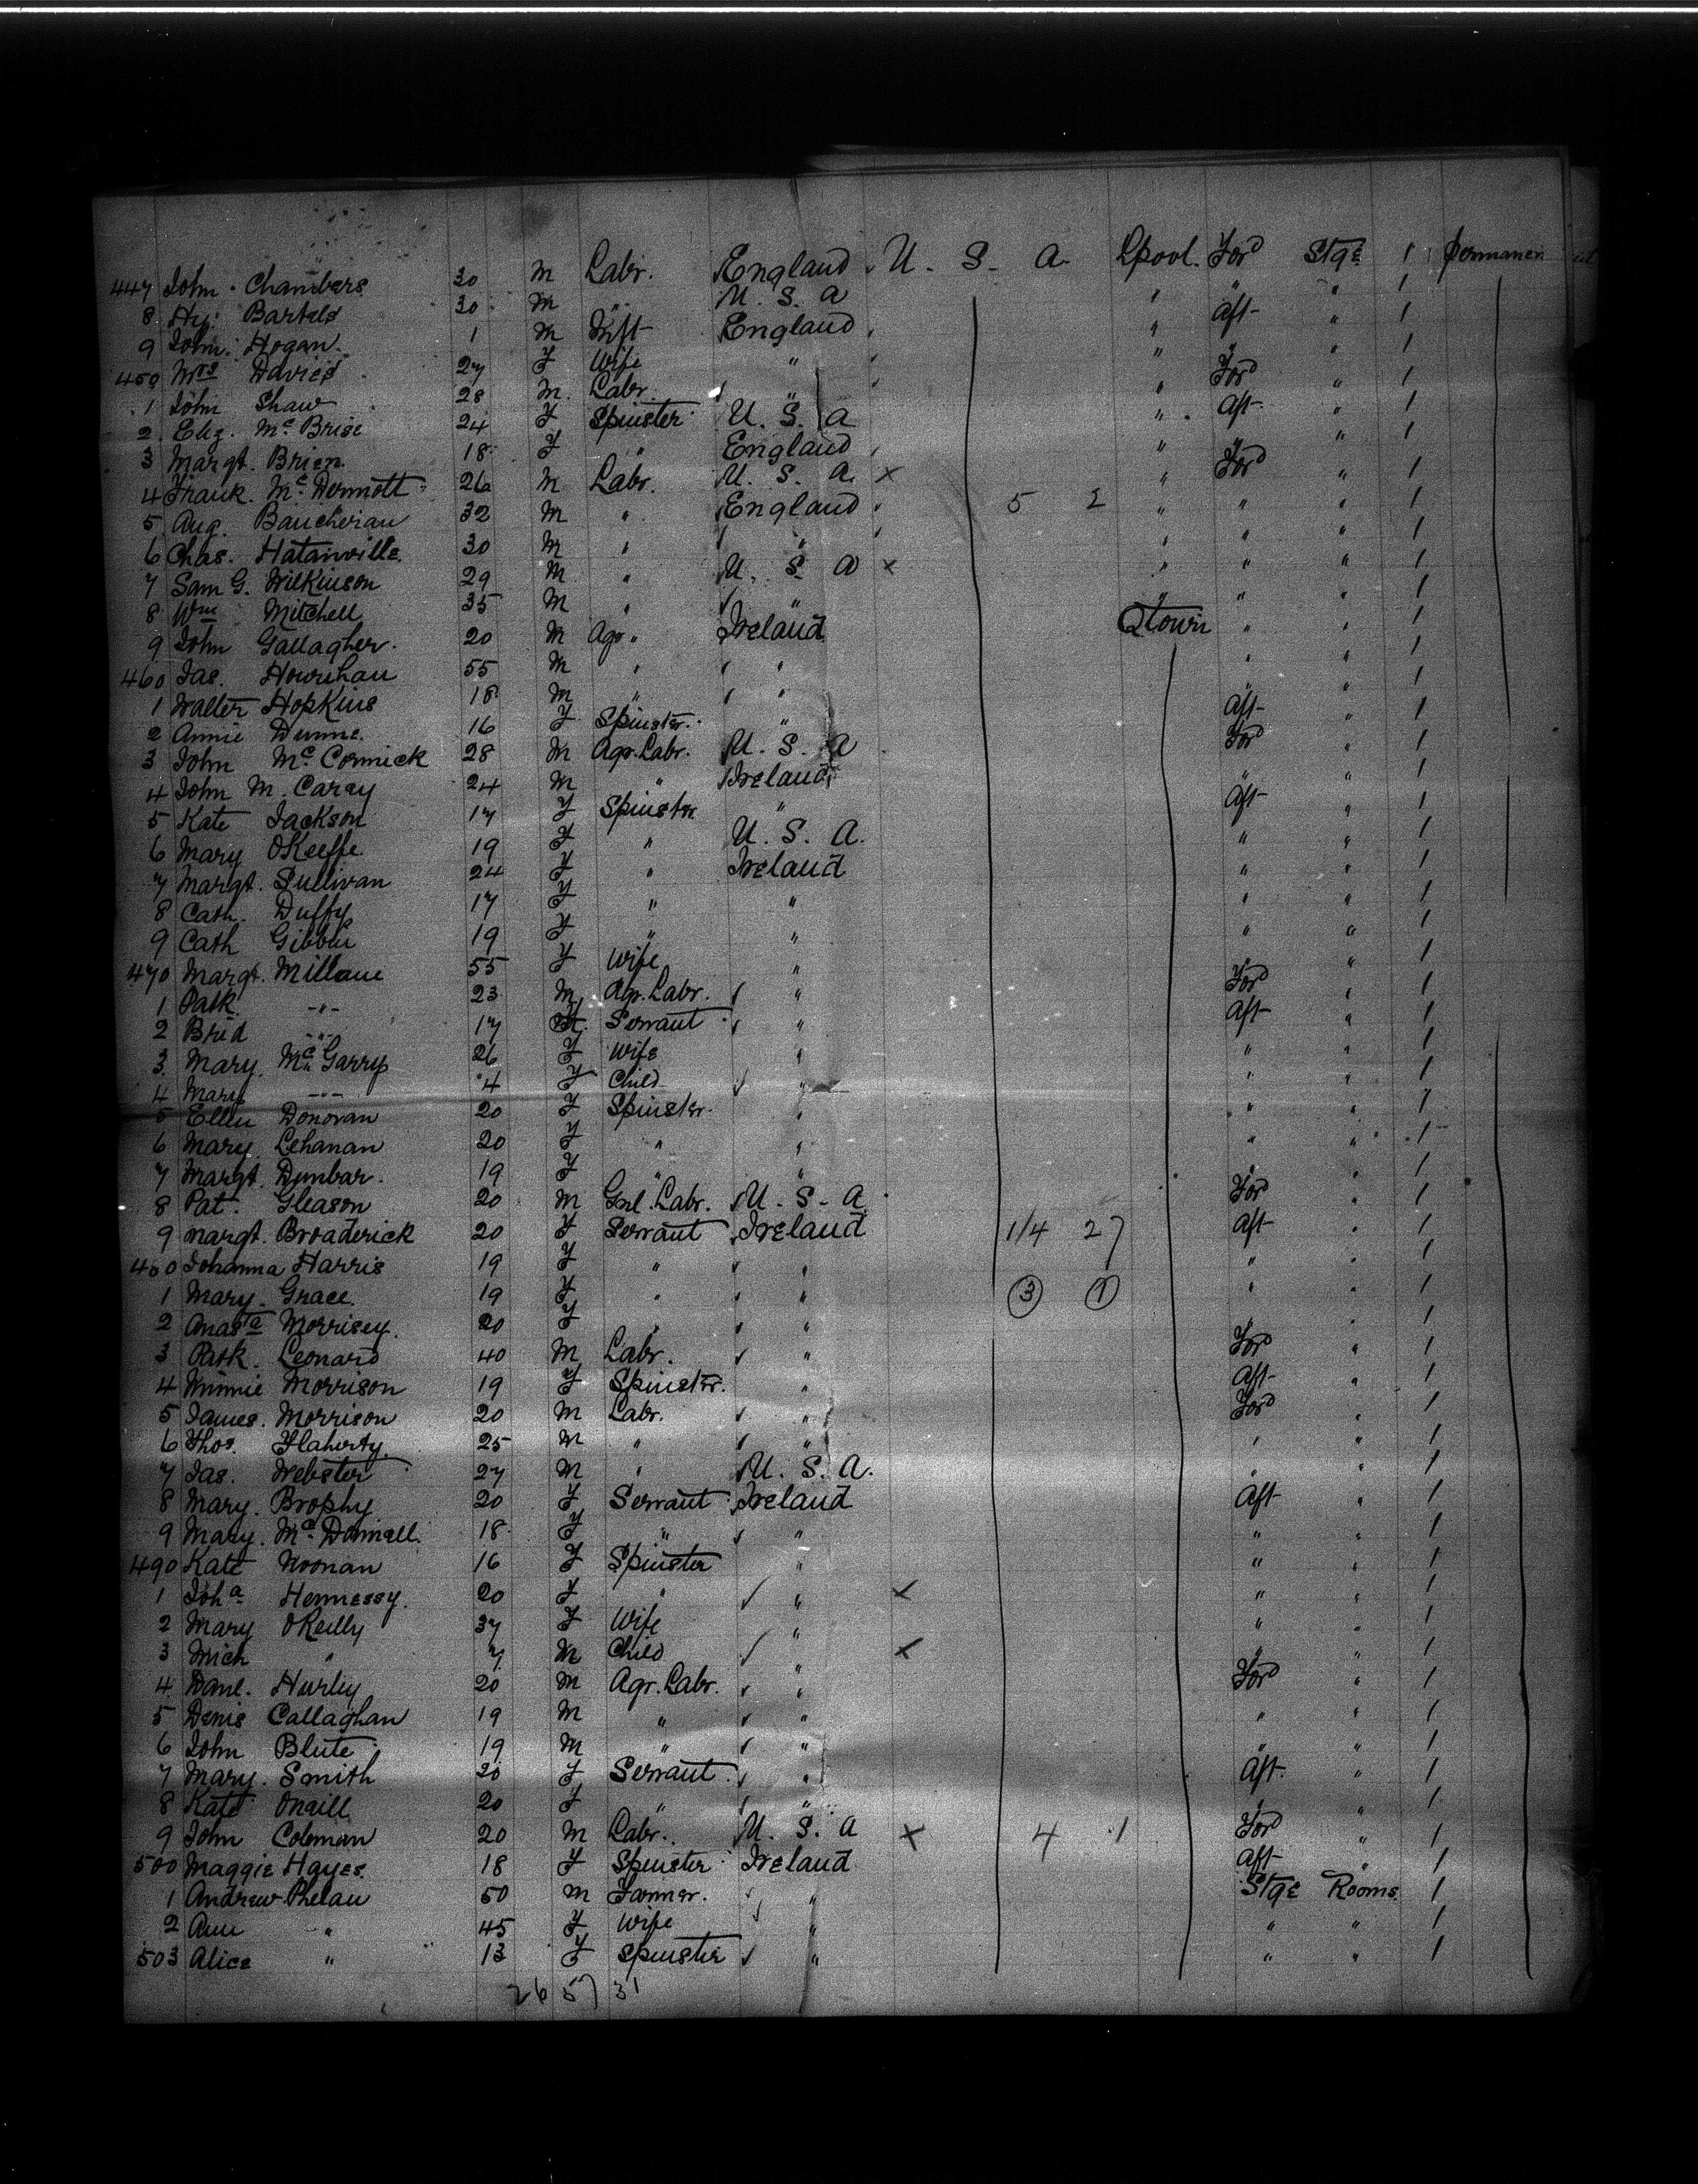 447 John Chambers 30 M Labr. England U. S. A. Lpool. Ford Stge 1 permanent
8 Hy. Bartels 30 M " U. S. A " " " 1
9 John Hogan 1 M Inft England " Aft " 1
450 Mrs Davies 27 F Wife " " " " 1
1 John Shaw 28 M Labr. " " Ford " 1
2 Eliz. McBrise 24 F Spinster U. S. A " Aft " 1
3 Margt. Brien 18 F " England " " " 1
4 Frank. McDermott 26 M Labr. U. S. A. × " Ford " 1
5 Aug. Baucherau 32 M " England 5 2 " " " 1
6 Chas. Hatanville 30 M " " " " " 1
7 Sam G. Wilkinson 29 M " U. S. A × " " " 1
8 Wm Mitchell 35 M " " " " " 1
9 John Gallagher. 20 M Agr " Ireland Qtown " " 1
460 Jas. Hourihan 55 M " " " " 1
1 Walter Hopkins 18 M " " " " 1
2 Annie Dunne. 16 F Spinster. " Aft " 1
3 John McCormick 28 M Agr. Labr. U. S. A Ford " 1
4 John M. Carey 24 M " Ireland " " 1
5 Kate Jackson 17 F Spinster " Aft " 1
6 Mary OKeeffe 19 F " U. S. A. " " 1
7 Margt. Sullivan 24 F " Ireland " " 1
8 Cath. Duffy 17 F " " " " 1
9 Cath Gibbin 19 F " " " " 1
470 Margt. Millane 55 F Wife " " " 1
1 Patk. -"- 23 M Agr. Labr. " Ford " 1
2 Brid -"- 17 F Servant " Aft " 1
3 Mary. McGarry 26 F Wife " " " 1
4 Mary -"- 4 F Child " " " 1
5 Ellen Donovan 20 F Spinster. " " " 1
6 Mary. Lehanan 20 F " " " " 1
7 Margt. Dunbar. 19 F " " " " 1
8 Pat. Gleason 20 M Gnl. Labr. U. S. A Ford " 1
9 Margt. Broaderick 20 F Servant Ireland 1/4 27 Aft " 1
480 Johanna Harris 19 F " " " " 1
1 Mary. Grace. 19 F " " 3 1 " " 1
2 Anasta Morrisey. 20 F " " " " 1
3 Patk. Leonard 40 M Labr. " Ford " 1
4 Winnie Morrison 19 F Spinster. " Aft " 1
5 James. Morrison 20 M Labr. " Ford " 1
6 Thos. Flaherty 25 M " " " " 1
7 Jas. Webster 27 M " U. S. A. " " 1
8 Mary. Brophy 20 F Servant Ireland Aft " 1
9 Mary. McDonnell 18 F " " " " 1
490 Kate Noonan 16 F Spinster " " " 1
1 Joha Hennessy. 20 F " " × " " 1
2 Mary OReilly 37 F Wife " " " 1
3 Mich " 7 M Child " × " " 1
4 Danl. Hurley 20 M Agr. Labr. " Ford " 1
5 Denis Callaghan 19 M " " " " 1
6 John Blute 19 M " " " " 1
7 Mary. Smith 20 F Servant " Aft. " 1
8 Kate Oneill 20 F " " " " 1
9 John Coleman 20 M Labr. U. S. A × 4 1 Ford " 1
500 Maggie Hayes. 18 F Spinster Ireland Aft " 1
1 Andrew Phelan 50 M Farmer. " Stge Rooms 1
2 Ann " 45 F Wife " " " 1
503 Alice " 13 F Spinster " " " 1
26 57 31